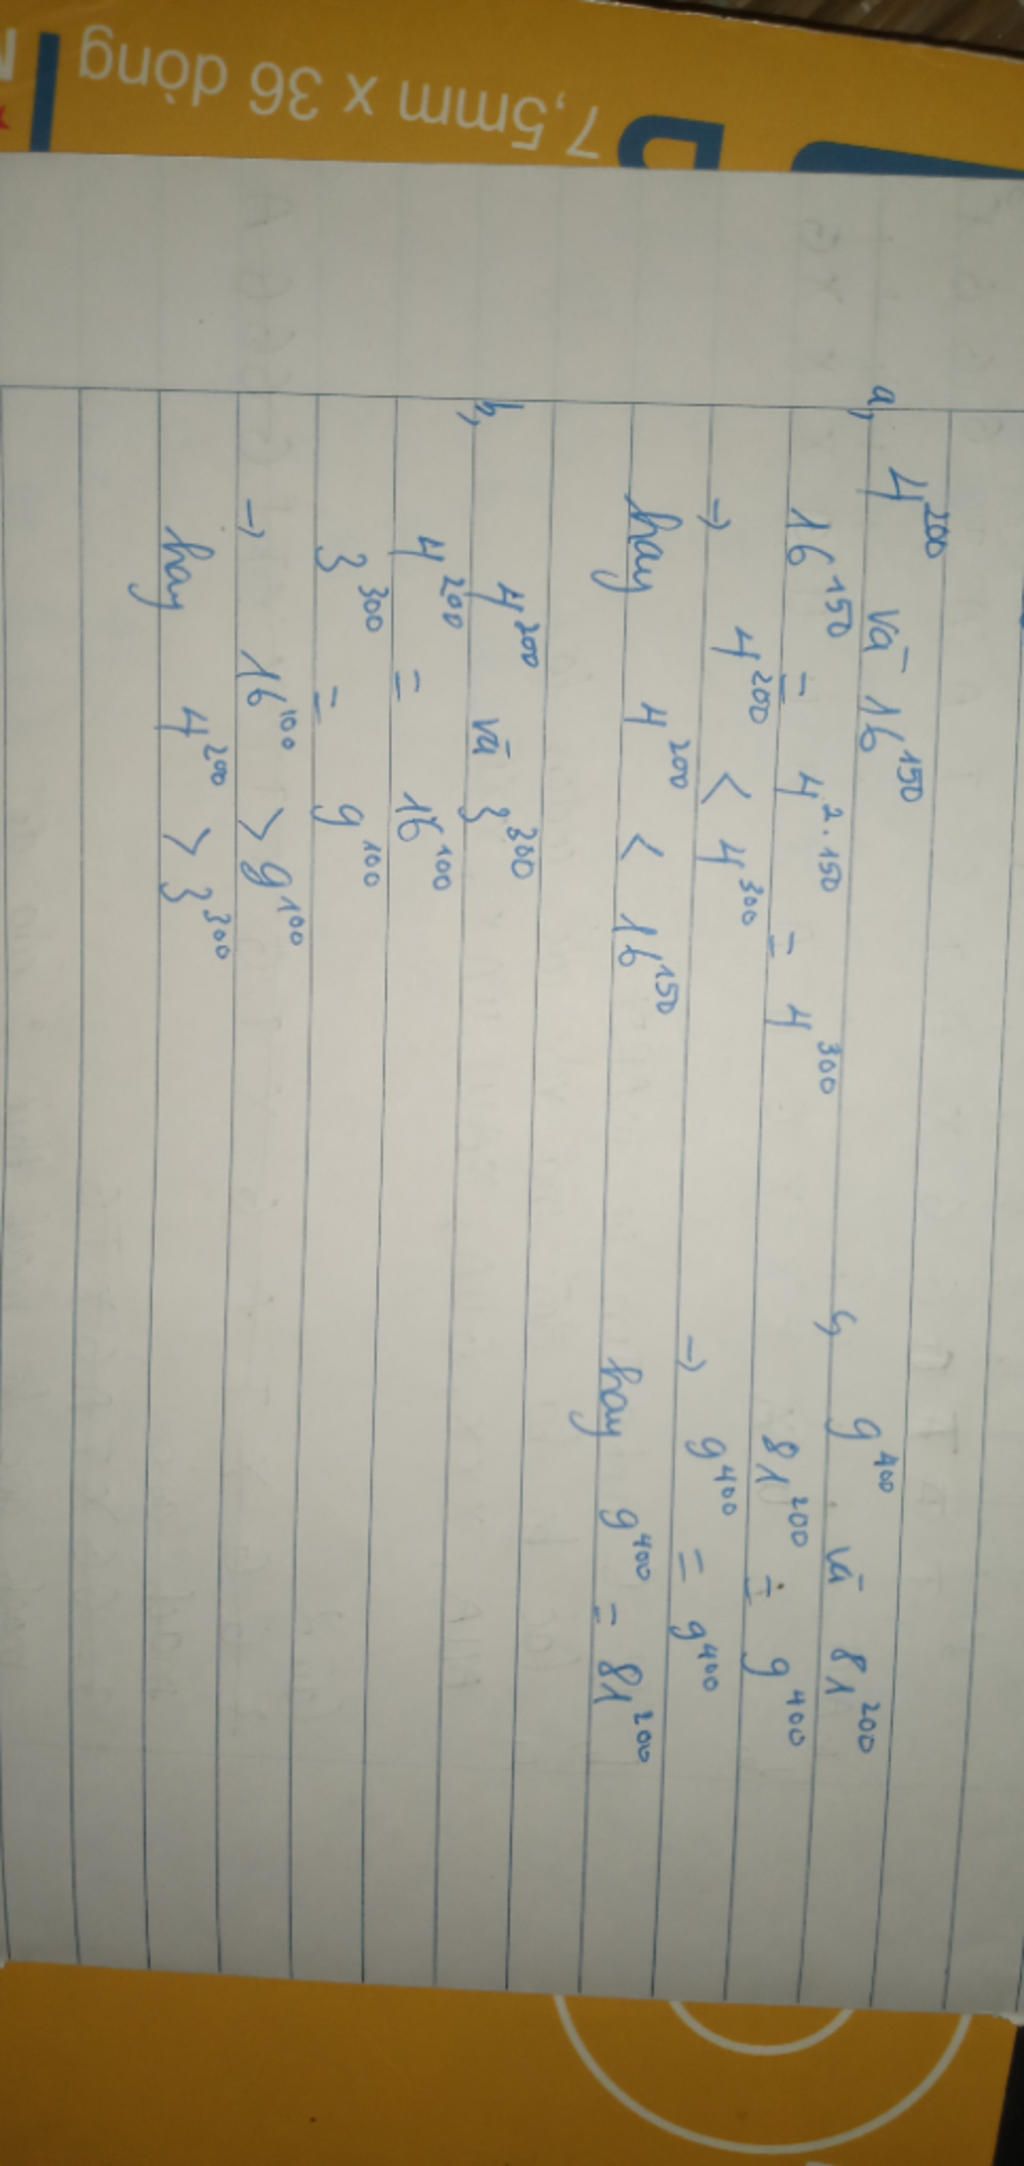 7,5mm x 36 dòng
a, 4²⁰⁰ và 16¹⁵⁰
16¹⁵⁰ = 4²·¹⁵⁰ = 4³⁰⁰
→ 4²⁰⁰ < 4³⁰⁰
hay 4²⁰⁰ < 16¹⁵⁰
b, 4²⁰⁰ và 3³⁰⁰
4²⁰⁰ = 16¹⁰⁰
3³⁰⁰ = 9¹⁰⁰
→ 16¹⁰⁰ > 9¹⁰⁰
hay 4²⁰⁰ > 3³⁰⁰
c, 9⁴⁰⁰ và 81²⁰⁰
81²⁰⁰ = 9⁴⁰⁰
→ 9⁴⁰⁰ = 9⁴⁰⁰
hay 9⁴⁰⁰ = 81²⁰⁰